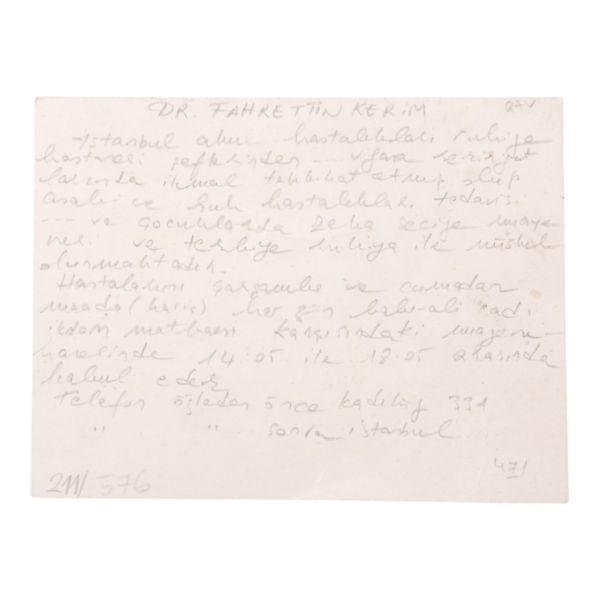 DR. FAHRETTİN KERİM
İstanbul hastalıkları ruhiye
hastanesi şeflerinden ... Viyana seririyat
larında ikmal tahkikat etmiş olup
asabi ve ruh hastalıkları tedavisi
--- ve çocuklarda zeka seciye muaye
nesi ve terbiye ruhiya ile
olunmaktadır.
Hastalarını çarşamba ve cumadan
maada (hariç) her gün babı-ali cad.
ikdam matbaası karşısındaki muayene-
hanesinde 14:05 ile 18:05 arasında
kabul eder
Telefon öğleden önce kadıköy 331
" " sonra istanbul
471
211/576